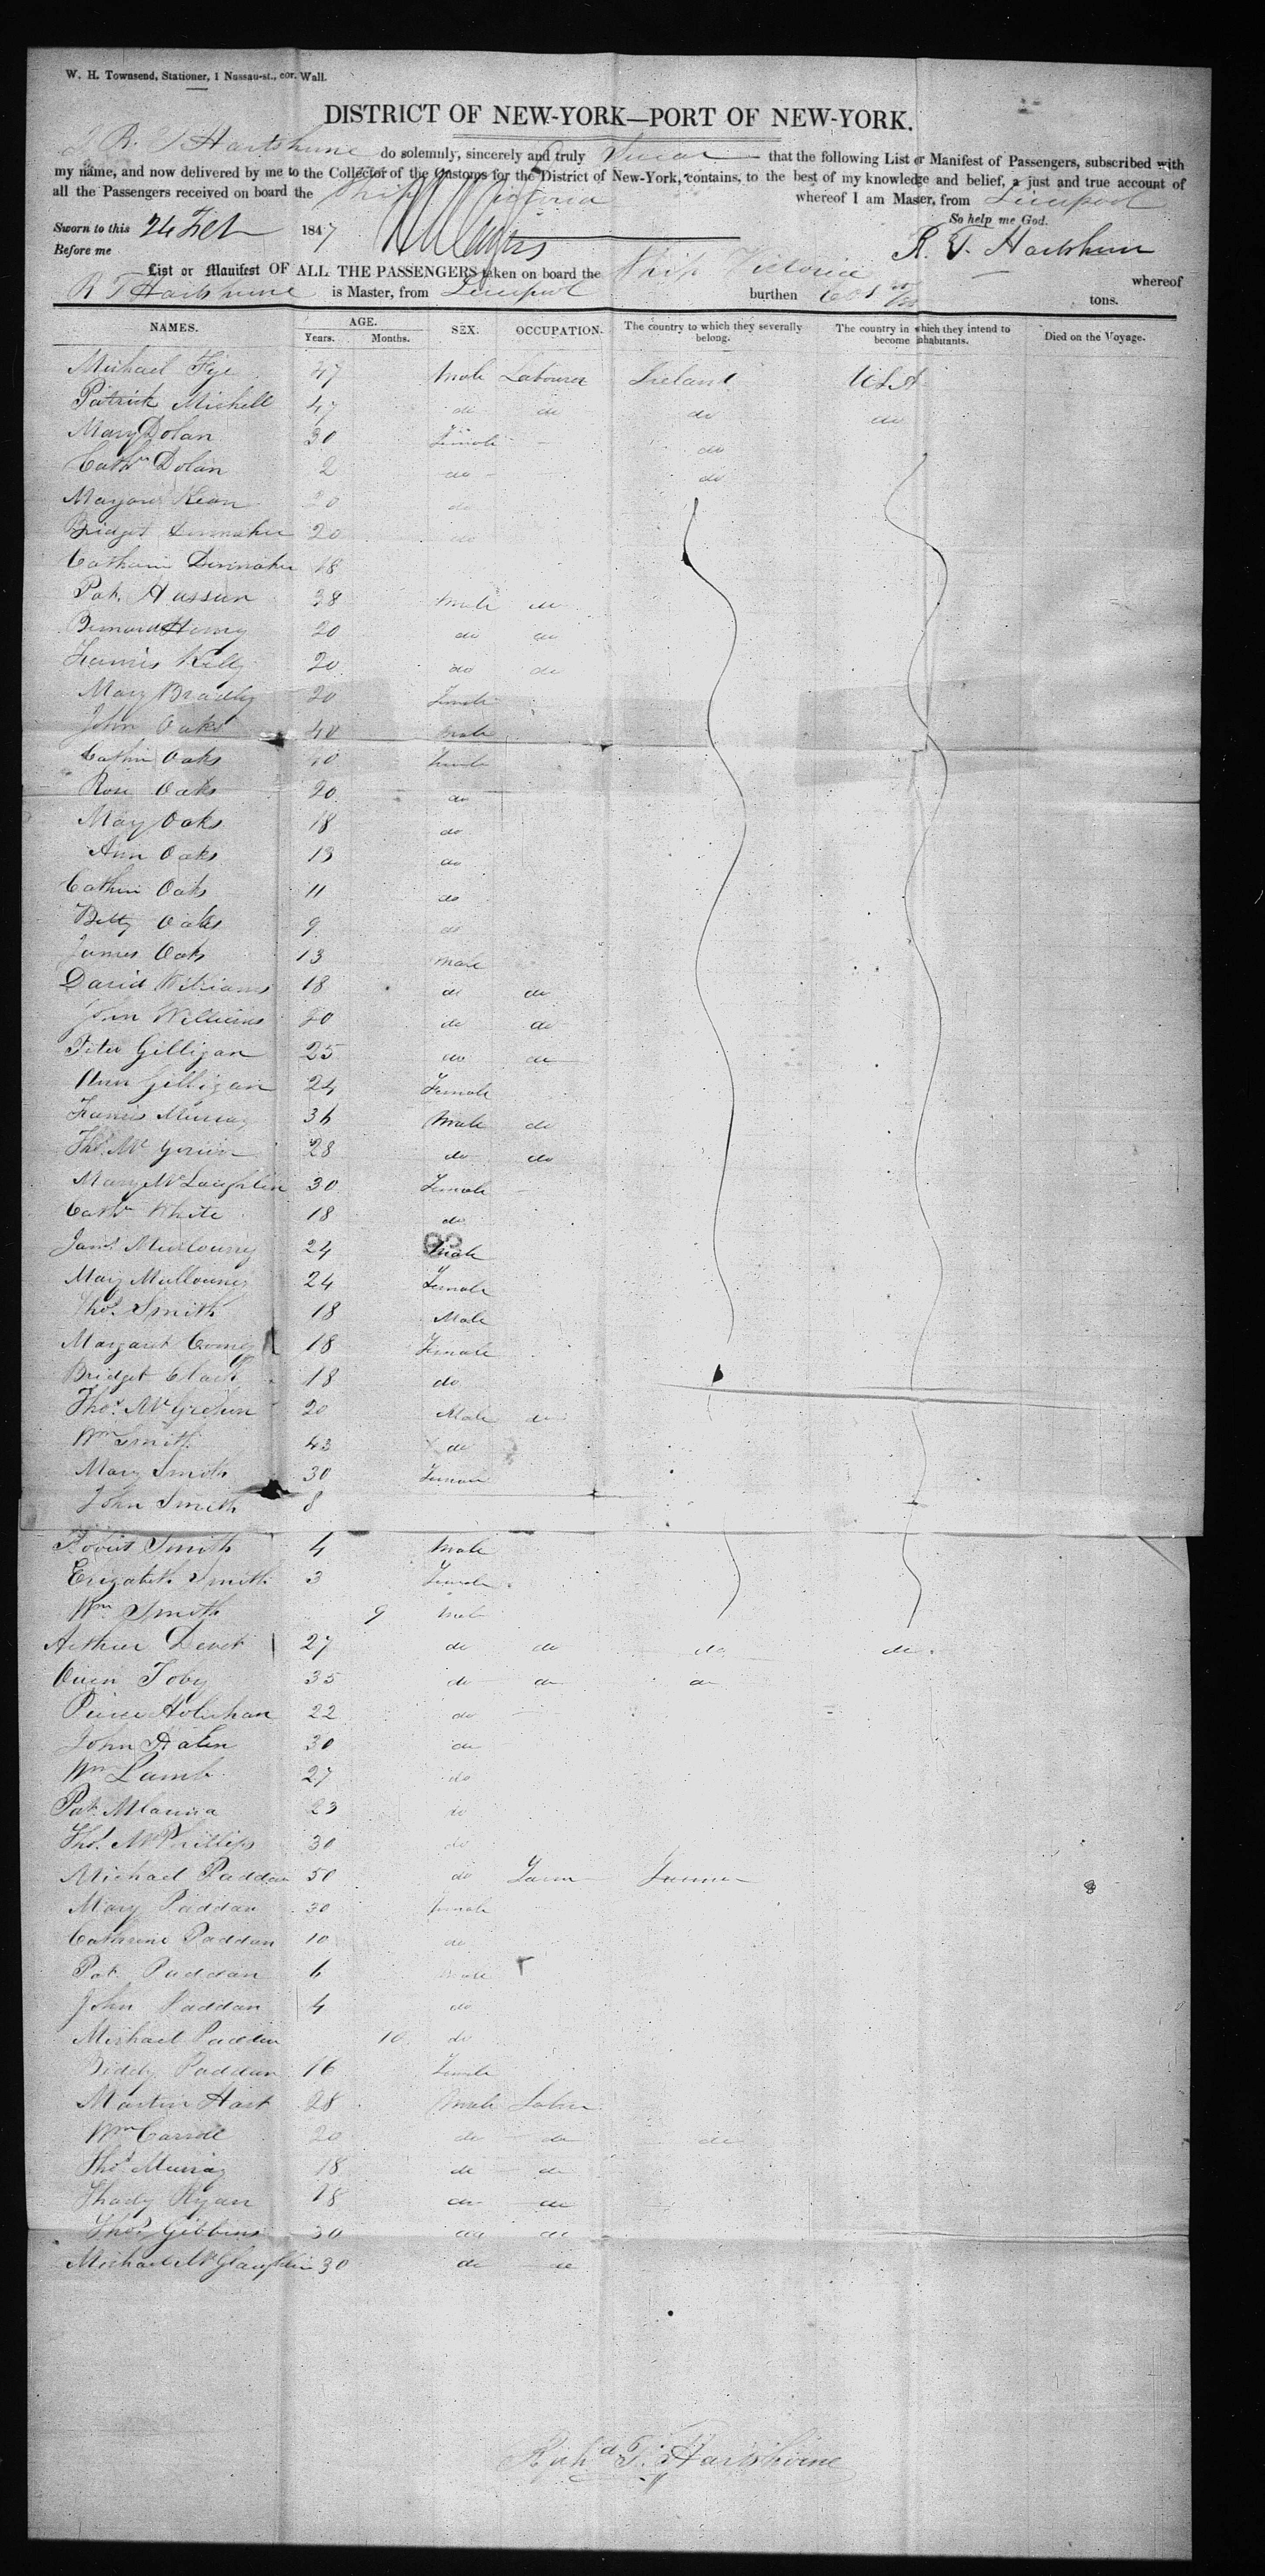 W. H. Townsend, Stationer, 1 Nassau-st., cor. Wall.
DISTRICT OF NEW-YORK—PORT OF NEW-YORK.
I R. T Hartshorne do solemnly, sincerely and truly Swear that the following List or Manifest of Passengers, subscribed with
my name, and now delivered by me to the Collector of the Customs for the District of New-York, contains, to the best of my knowledge and belief, a just and true account of
all the Passengers received on board the Ship Victoria whereof I am Master, from Liverpool
So help me God.
Sworn to this 24 Feb 1847
R. T. Hartshorne
Before me
List or Manifest OF ALL THE PASSENGERS taken on board the Ship Victoria whereof
R T Hartshorne is Master, from Liverpool burthen tons.
NAMES. AGE. SEX. OCCUPATION. The country to which they severally belong. The country in which they intend to become inhabitants. Died on the Voyage.
Years. Months.
Michael 47 Male Labourer Ireland USA
Patrick Michell 47 do do do do
Mary Dolan 30 Female do
Cathn Dolan 2 do do
Margaret Kean 20 do
Bridget 20 do
Catharin 18
Pat. Hassan 38 Male do
Bernard Henry 20 do do
Francis Kelly 20 do do
Mary Bradly 20 Female
John Oaks 40 Male
Cathn Oaks 40 Female
Rose Oaks 20 do
Mary Oaks 18 do
Ann Oaks 13 do
Cathn Oaks 11 do
Betty Oaks 9 do
James Oaks 13 Male
David Williams 18 do do
John Williams 20 do do
Peter Gilligan 25 do do
Ann Gilligan 24 Female
Francis Murray 36 Male do
Thos. Mc 28 do do
Mary McLaughlin 30 Female
Cathn White 18 do
Jams. Mullouny 24 Male
Mary Mullouny 24 Female
Thos. Smith 18 Male
Margaret 18 Female
Bridget Clark 18 do
Thos. Mc 20 Male do
Wm Smith 43 do
Mary Smith 30 Female
John Smith 8
Robert Smith 4 Male
Elizabeth Smith 3 Female
Wm Smith 9 Male
Arthur 27 do do do do
Owen Toby 35 do do do
Pierce Holahan 22 do
John 30 do
Wm Lamb 27 do
Pat. 23 do
Thos. McPhillips 30 do
Michael Paddan 50 do Farm Farmer
Mary Paddan 30 Female
Catharine Paddan 10 do
Pat Paddan 6 Male
John Paddan 4 do
Michael Paddan 10 do
Biddy Paddan 16 Female
Martin Hart 28 Male Labr
Wm Carroll 20 do do do
Thos. Murray 18 do do
Thady Ryan 18 do do
Thos. Gibbins 30 do do
Michael McGlaughlin 30 do do
Richd T. Hartshorne